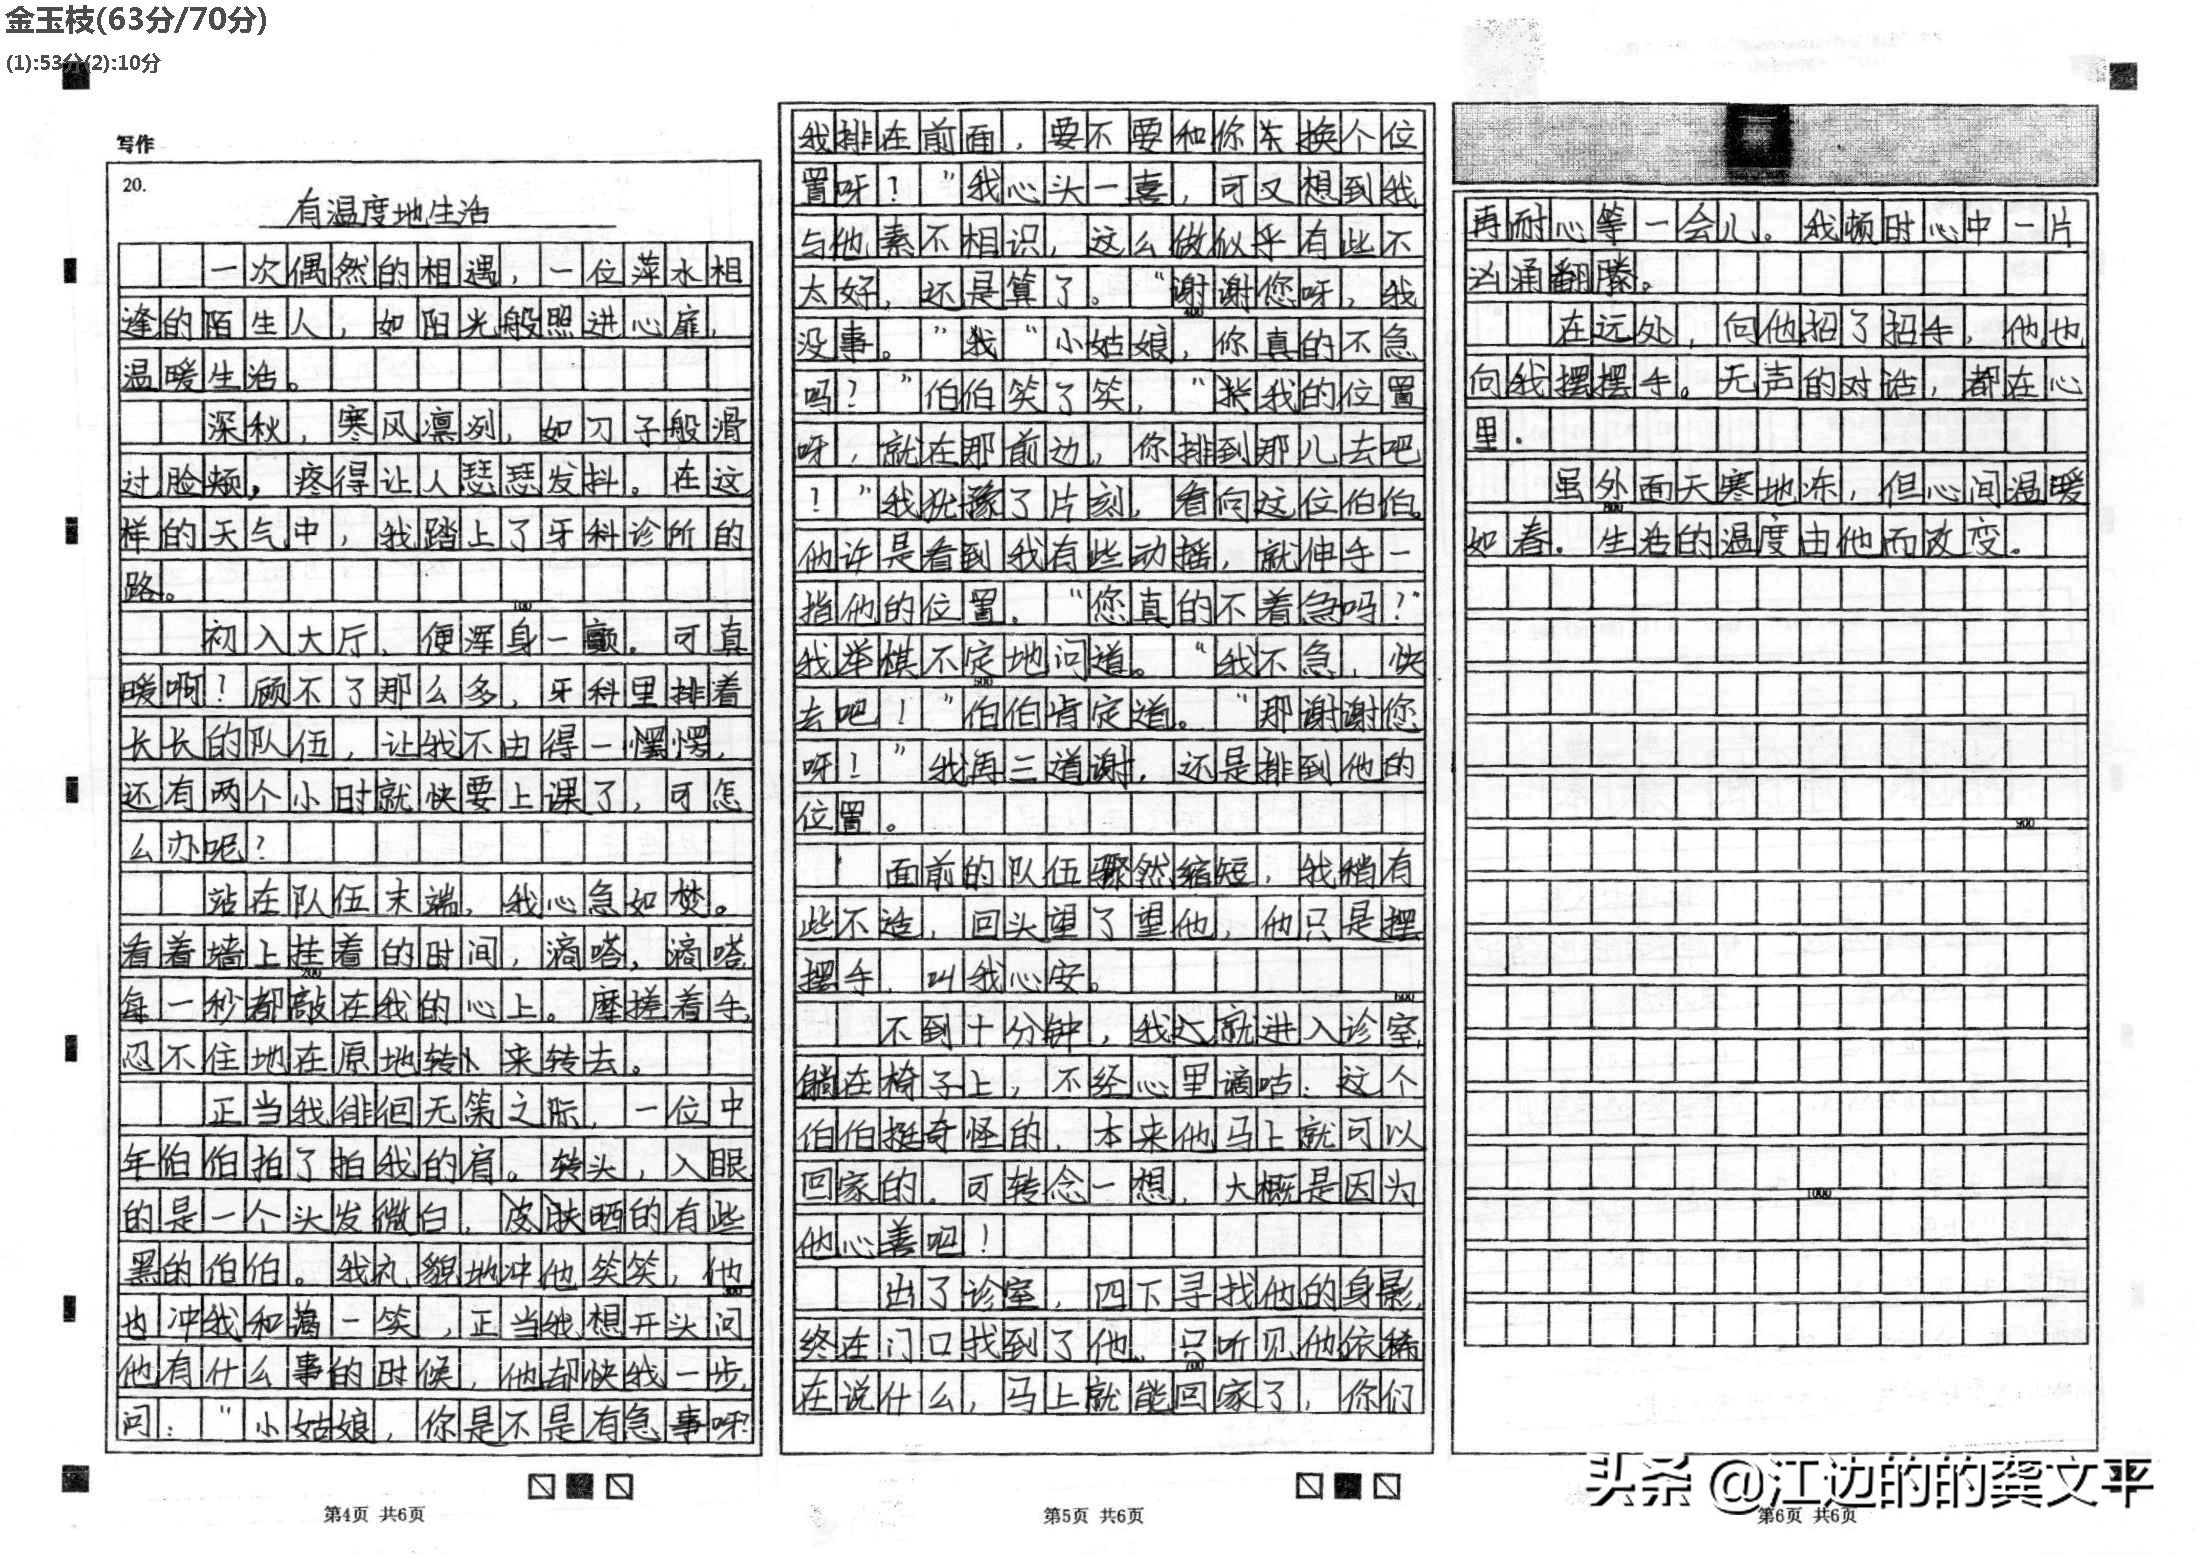 金玉枝(63分/70分)
(1):53分(2):10分
写作
20.
有温度地生活
一次偶然的相遇，一位萍水相
逢的陌生人，如阳光般照进心扉，
温暖生活。
深秋，寒风凛冽，如刀子般滑
过脸颊，疼得让人瑟瑟发抖。在这
样的天气中，我踏上了牙科诊所的
路。
100
初入大厅，便浑身一颤。可真
暖啊！顾不了那么多，牙科里排着
长长的队伍，让我不由得一愣愕，
还有两个小时就快要上课了，可怎
么办呢？
站在队伍末端，我心急如焚。
看着墙上挂着的时间，滴嗒，滴嗒，
200
每一秒都敲在我的心上。摩搓着手，
忍不住地在原地转来转去。
正当我徘徊无策之际，一位中
年伯伯拍了拍我的肩。转头，入眼
的是一个头发微白，皮肤晒的有些
黑的伯伯。我礼貌地冲他笑笑，他
300
也冲我和蔼一笑，正当我想开头问
他有什么事的时候，他却快我一步，
问："小姑娘，你是不是有急事呀？
第4页 共6页
我排在前面，要不要和你换个位
置呀！"我心头一喜，可又想到我
与他素不相识，这么做似乎有些不
太好，还是算了。"谢谢您呀，我
400
没事。"我"小姑娘，你真的不急
吗？"伯伯笑了笑，"我的位置
呀，就在那前边，你排到那儿去吧
！"我犹豫了片刻，看向这位伯伯。
他许是看到我有些动摇，就伸手一
指他的位置。"您真的不着急吗？"
我举棋不定地问道。"我不急，快
500
去吧！"伯伯肯定道。"那谢谢您
呀！"我再三道谢，还是排到他的
位置。
面前的队伍骤然缩短，我稍有
些不适，回头望了望他，他只是摆
摆手，叫我心安。
600
不到十分钟，我就进入诊室，
躺在椅子上，不经心里嘀咕：这个
伯伯挺奇怪的，本来他马上就可以
回家的。可转念一想，大概是因为
他心善吧！
出了诊室，四下寻找他的身影，
终在门口找到了他。只听见他依稀
700
在说什么，马上就能回家了，你们
第5页 共6页
再耐心等一会儿。我顿时心中一片
汹涌翻腾。
在远处，向他招了招手，他也
向我摆摆手。无声的对话，都在心
里。
虽外面天寒地冻，但心间温暖
800
如春。生活的温度由他而改变。
900
1000
头条 @江边的的龚文平
第6页 共6页